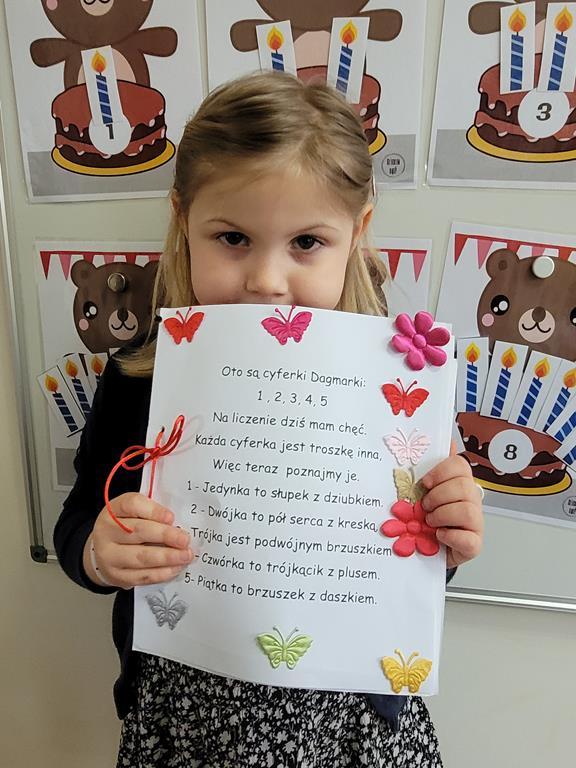 1
3
8
Oto są cyferki Dagmarki:
1, 2, 3, 4, 5
Na liczenie dziś mam chęć.
Każda cyferka jest troszkę inna,
Więc teraz poznajmy je.
1 - Jedynka to słupek z dziubkiem.
2 - Dwójka to pół serca z kreską,
Trójka jest podwójnym brzuszkiem
- Czwórka to trójkącik z plusem.
5- Piątka to brzuszek z daszkiem.